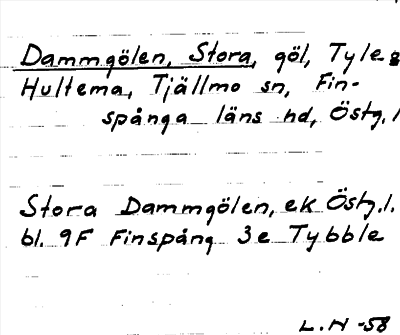 Dammgölen, Stora, göl, Tyle g
Hultema, Tjällmo sn, Fin-
spånga läns hd, Östg. l
Stora Dammgölen, ek Östg. l.
bl. 9F Finspång 3e Tybble
L. N -58